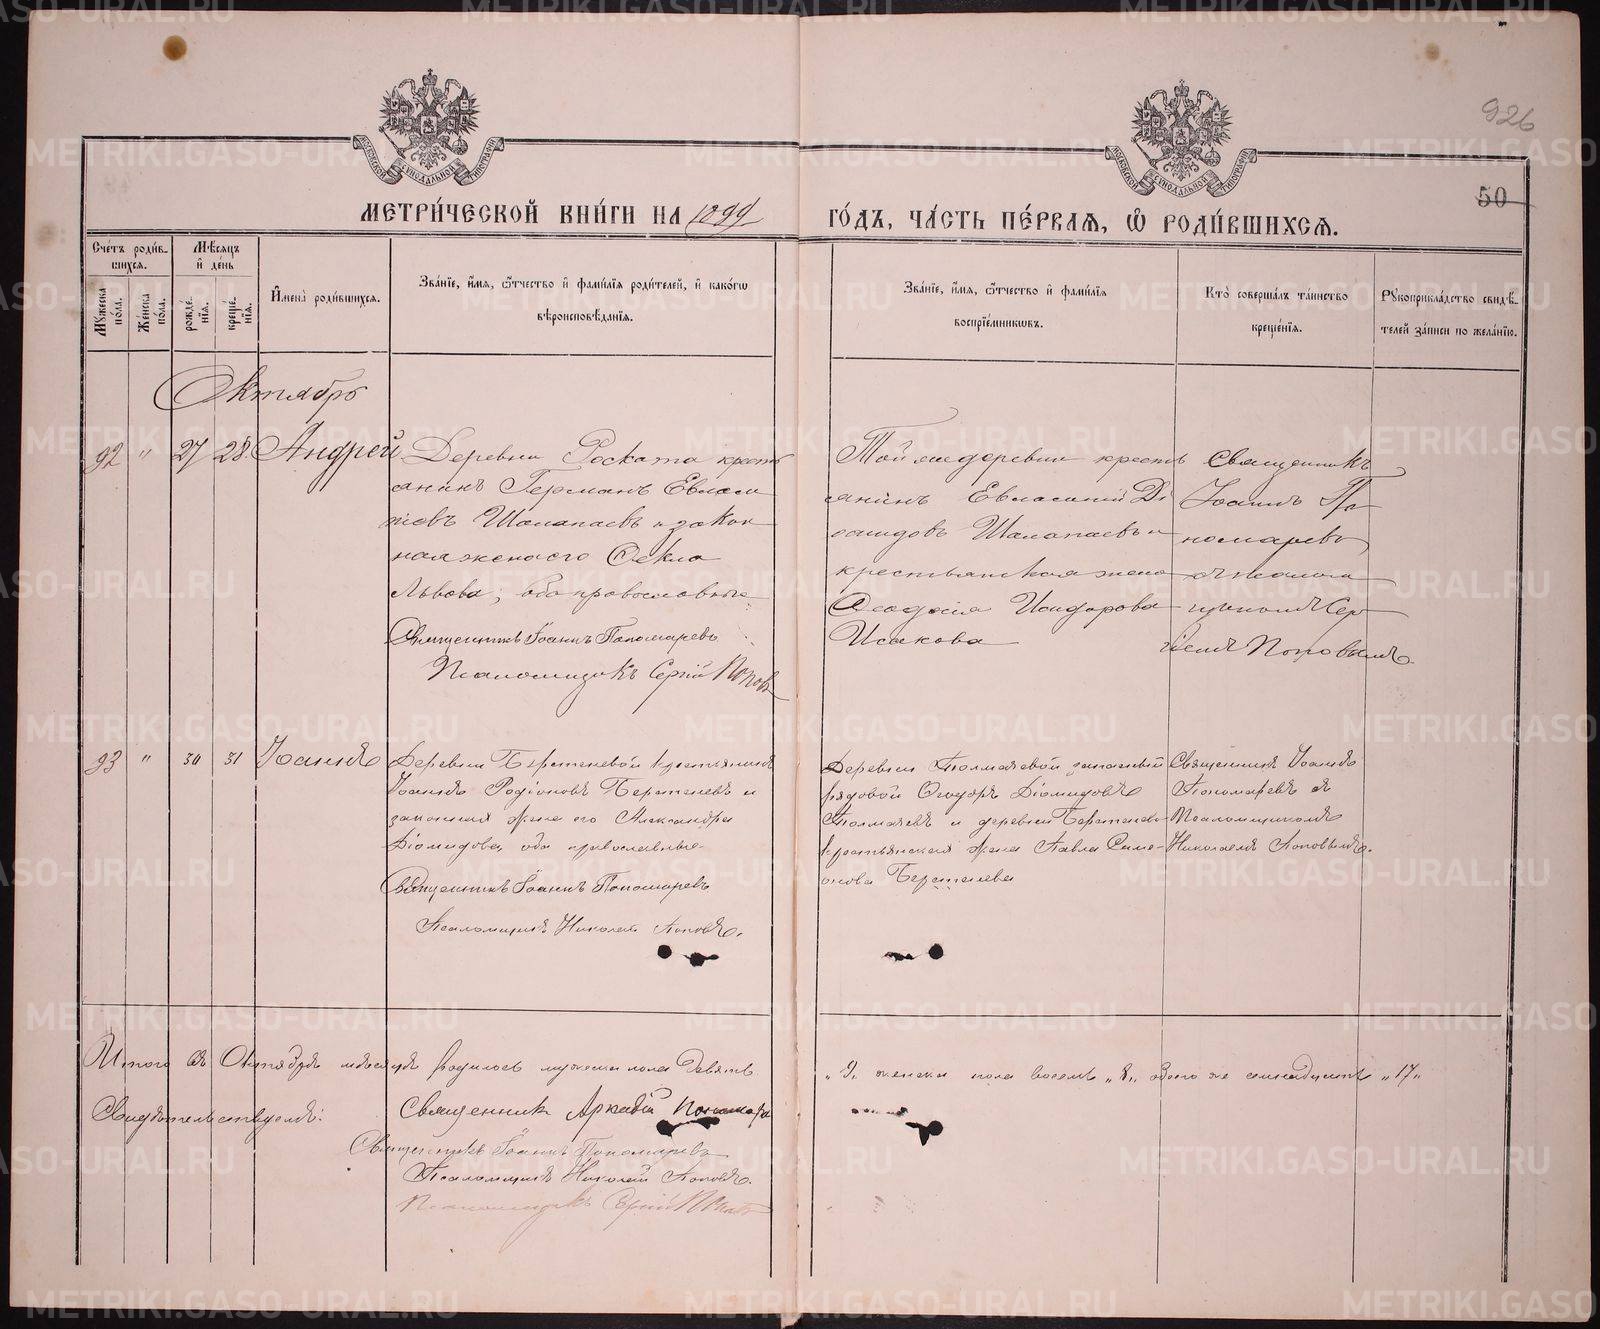 926
50
МОСКОВСКОЙ СѴНОДАЛЬНОЙ ТИПОГРАФІИ
МОСКОВСКОЙ СѴНОДАЛЬНОЙ ТИПОГРАФІИ
МЕТРИ́ЧЕСКОЙ КНИ́ГИ НА 1899 ГО́ДЪ, ЧА́СТЬ ПЕ́РВАѦ, Ѽ РОДИ́ВШИХСѦ.
Сче́тъ роди́в-
шихся.
Мѣ́сяцъ
и҆ де́нь
Мꙋ́жеска по́ла.
Же́нска по́ла.
рожде́нїѧ.
креще́нїѧ.
И҆мена̀ роди́вшихся.
Зва́нїе, и҆́мѧ, ѻ҆́тчество и҆ фамі́лїѧ роди́телей, и҆ како́гѡ
вѣроисповѣ́данїѧ.
Зва́нїе, и҆́мѧ, ѻ҆́тчество и҆ фамі́лїѧ
воспрїе́мникѡвъ.
Кто̀ соверша́лъ та́инство
креще́нїѧ.
Рꙋкоприкла́дство свидѣ́-
телей за́писи по жела́нїю.
Октябрь
92 " 27 28 Андрей
Деревни Роската кресть
янинъ Германъ Евламп
іевъ Шалапаевъ и закон
ная жена его Ѳекла
Львова, оба православные
Священникъ Іоаннъ Пономаревъ
Псаломщикъ Сергій Поповъ
Той же деревни кресть
янинъ Евлампій Ді
омидовъ Шалапаевъ и
крестьянская жена
Ѳеодосія Исидорова
Исакова
Священникъ
Іоаннъ По
номаревъ
съ псалом
щикомъ Сер
гіемъ Поповымъ.
93 " 30 31 Іоаннъ
Деревни Берстеневой крестьянинъ
Іоаннъ Родіоновъ Берстеневъ и
законная жена его Александра
Діомидова, оба православные
Священникъ Іоаннъ Пономаревъ
Псаломщикъ Николай Поповъ.
Деревни Толмачевой запасный
рядовой Ѳеодоръ Діомидовъ
Толмачевъ и деревни Берстенево
крестьянская жена Павла Симе-
онова Берстенева
Священникъ Іоаннъ
Пономаревъ съ
Псаломщикомъ
Николаемъ Поповымъ.
Итого въ Октябрѣ мѣсяцѣ родилось мужеска пола девять „9„ женска пола восемь „8„ обоего же семнадцать „17„
Свидѣтельствуемъ:
Священникъ Аркадій Пономарев
Священникъ Іоаннъ Пономаревъ
Псаломщикъ Николай Поповъ.
Псаломщикъ Сергій Поповъ
METRIKI.GASO-URAL.RU